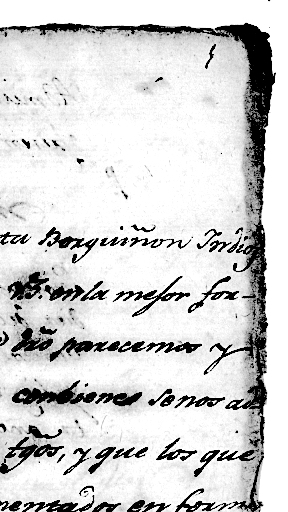 ta Borguiñon Indio
en la mejor for-
dro parecemos y
conbiene se nos ad
tgos, y que los que
mentados en forma